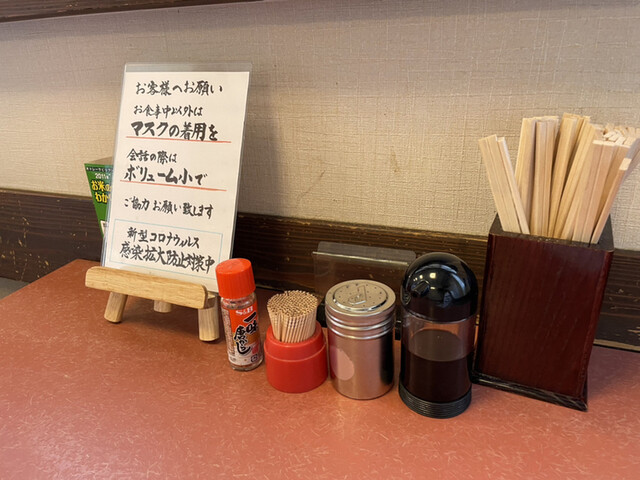 お客様へお願い
お食事中以外は
マスクの着用を
会話の際は
ボリューム小で
ご協力お願い致します
新型コロナウィルス
感染拡大防止対策中
2011年
お米の
わか
S&B
一味
唐がらし